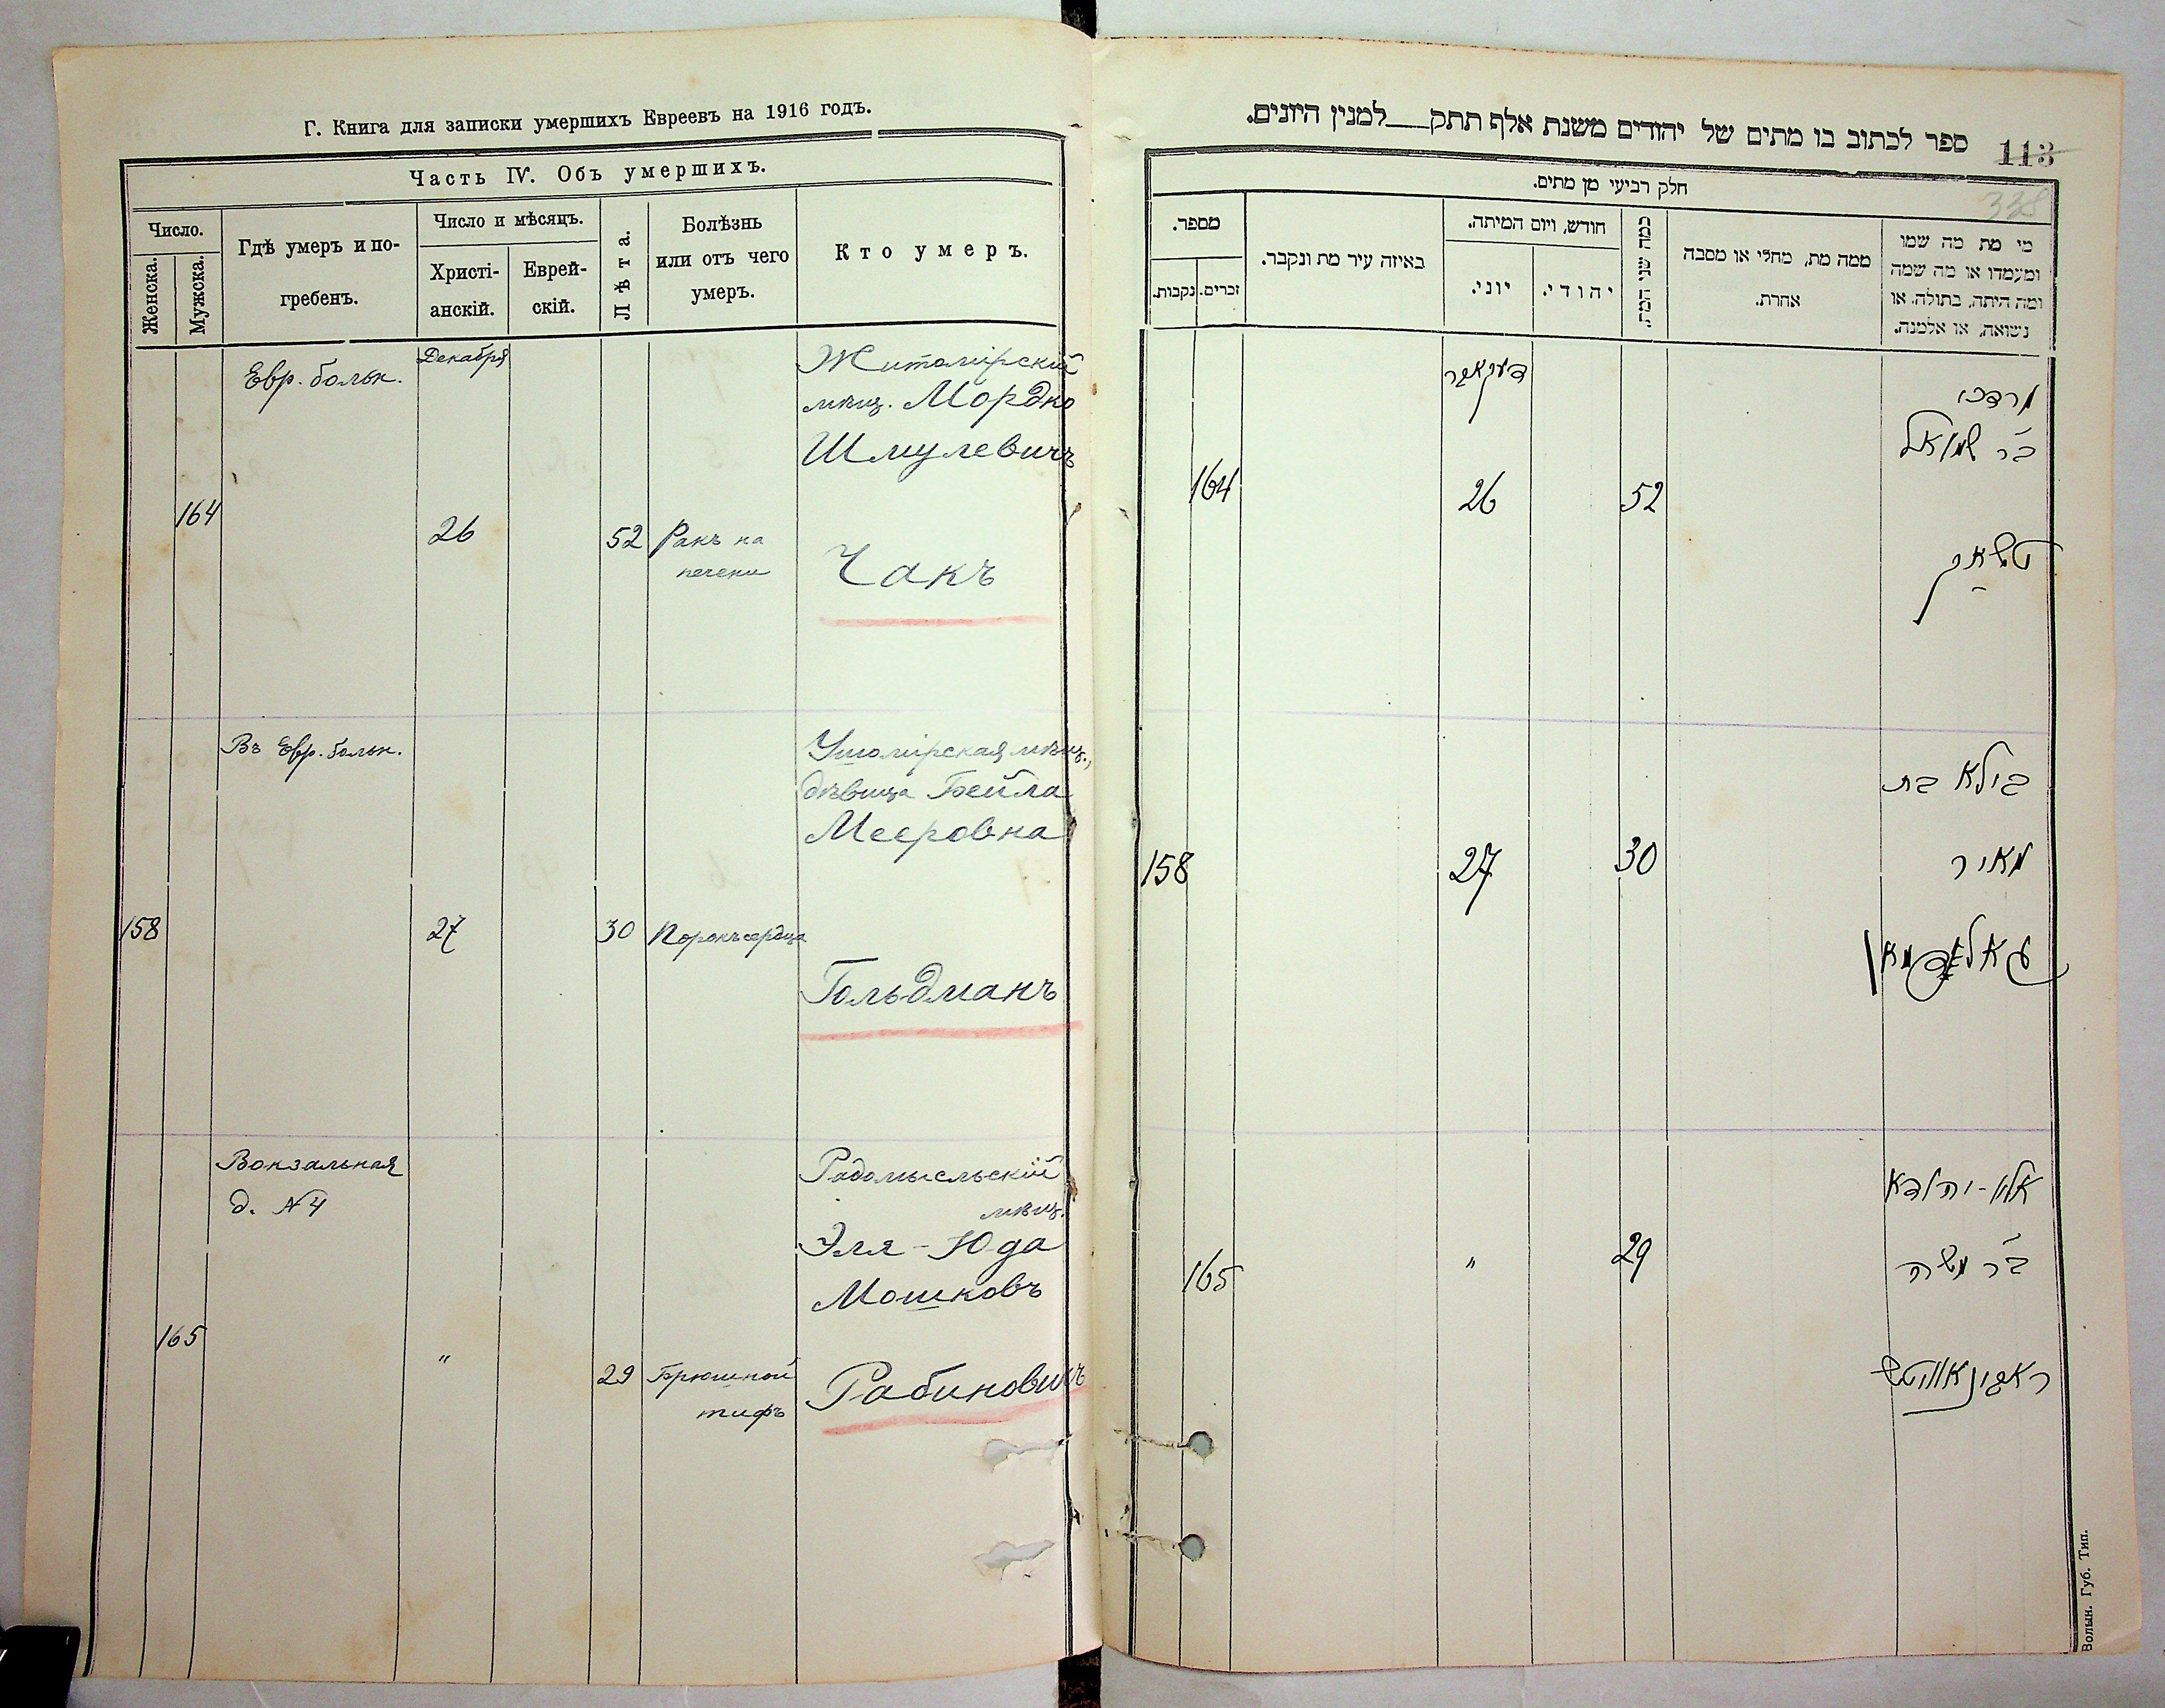 Г. Книга для записки умершихъ Евреевъ на 1916 годъ.
Часть IV. Объ умершихъ.
Число.
Женска.
Мужска.
Гдѣ умеръ и по-
гребенъ.
Число и мѣсяцъ.
Христі-
анскій.
Еврей-
скій.
Лѣта.
Болѣзнь
или отъ чего
умеръ.
Кто умеръ.
Декабря
Евр. больн.
Житомірскій
мѣщ. Мордко
Шмулевичъ
164
26
52
Ракъ на
печени
Чакъ
Въ Евр. больн.
Ушомірская мѣщ.,
дѣвица Бейла
Мееровна
158
27
30
Порокъ сердца
Гольдманъ
Вокзальная
д. №4
Радомысльскій
мѣщ.
Эля-Юда
Мошковъ
165
"
29
Брюшной
тифъ
Рабиновичъ
ספר לכתוב בו מתים של יהודים משנת אלף תתק___למנין היונים.
113
338
חלק רביעי מן מתים.
מספר.
זכרים.
נקבות.
באיזה עיר מת ונקבר.
חודש, ויום המיתה.
יוני.
יהודי.
כמה שני המת.
ממה מת, מחלי או מסבה
אחרת.
מי מת מה שמו
ומעמדו או מה שמה
ומה היתה, בתולה. או
נשואה, או אלמנה.
דעקאבר
מרדכי
ב״ר שמואל
164
26
52
טשאק
ביילא בת
מאיר
158
27
30
גאלדמאן
אלי-יהודא
ב״ר משה
165
"
29
ראבינאוויטש
Волын. Губ. Тип.